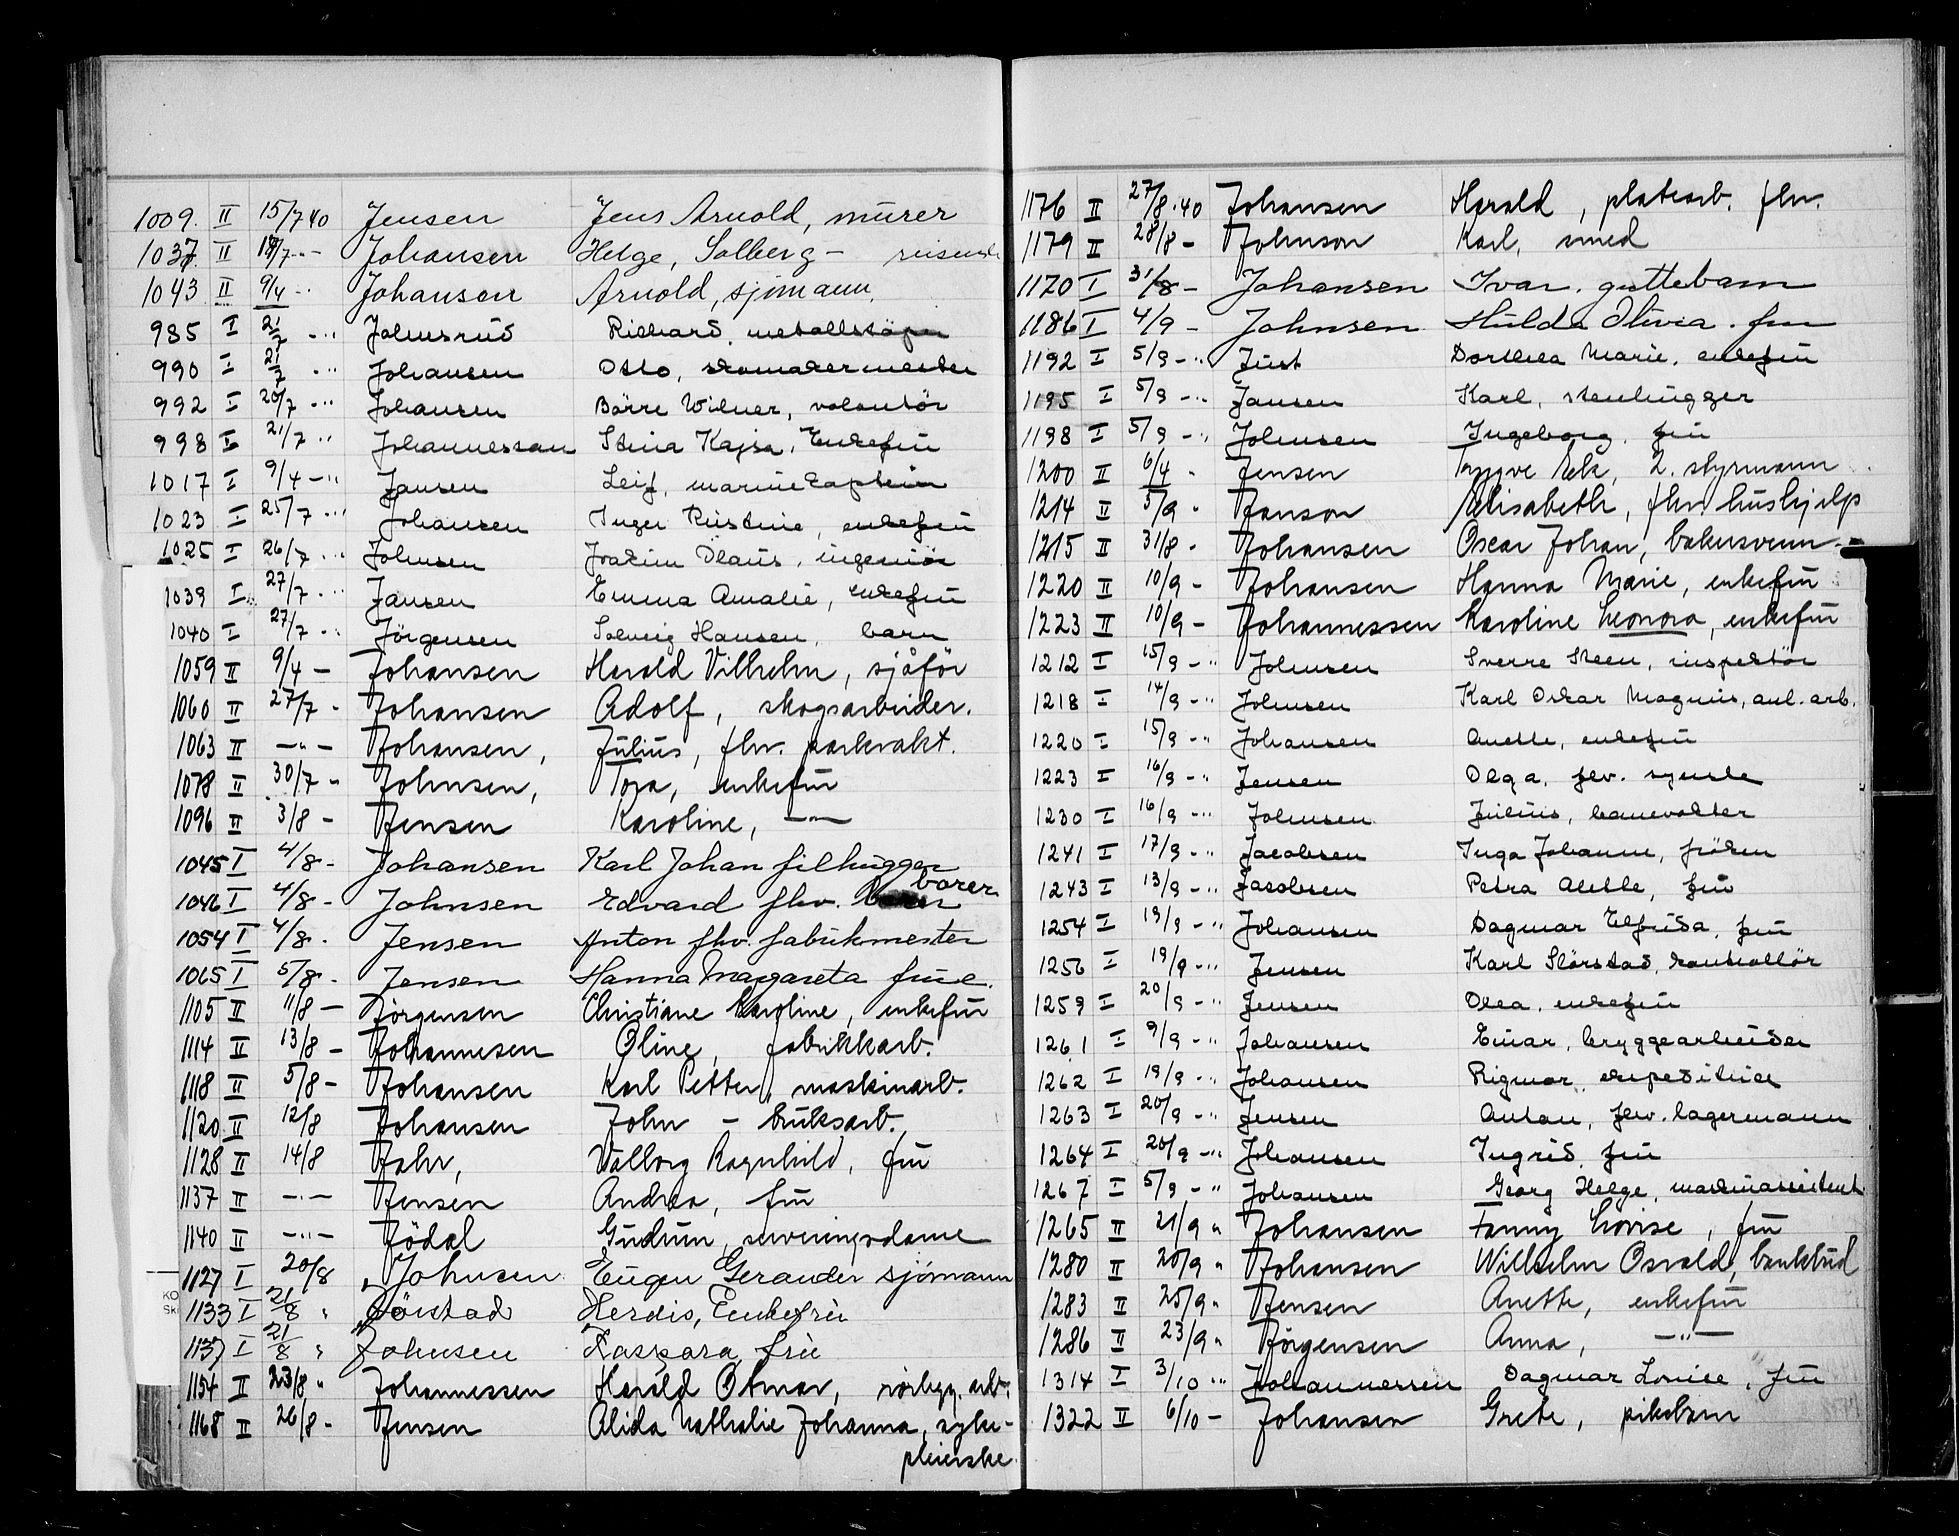 1009. II 15/7 40 Jensen Jens Arnold, murer
1037 II 17/7 -"- Johansen Helge, Solberg - reisende
1043 II 9/4 -" Johansen Arnold, sjømann.
985 I 21/7 -"- Johnsrud Richard, metallstøper
990 I 21/7 -"- Johansen Otto, skomakermester
992 I 20/7 -"- Johansen Börre Wilner, volontör
998 I 21/7 " Johannessen Stina Kajsa, Enkefru
1017 I 9/4 -" Jansen Leif, marinekaptein
1023 I 25/7 -" Johansen Inger Kristine, enkefru
1025 I 26/7 -" Johnsen Joakim Olaus, ingeniör
1039 I 27/7 -" Jansen Emma Amalie, enkefru
1040 I 27/7 -" Jörgensen Solveig Hansen, barn
1059 II 9/4 - Johansen Harald Vilhelm, sjåför
1060 II 27/7 - Johansen Adolf, skogsarbeider.
1063 II -"- Johansen, Julius, fhv. parkvakt.
1078 II 30/7 " Johnsen, Tora, enkefru
1096 II 3/8 - Jensen Karoline, -"-
1045 I 4/8 - Johansen Karl Johan filhugger
1046 I 4/8 - Johnsen Edvard fhv. borer
1054 I 4/8 - Jensen Anton fhv. fabrikmester
1065 I 5/8 - Jensen Hanna Margareta frue.
1105 II 11/8 - Jörgensen Christiane Karoline, enkefru
1114 II 13/8 - Johannesen Oline, fabrikkarb.
1118 II 5/8 - Johansen Karl Petter, maskinarb.
1120 II 12/8 Johansen John - bruksarb.
1128 II 14/8 Jahr, Valborg Ragnhild, fru
1137 II -"- Jensen Andrea, fru
1140 II -"- Jödal Gudrun, serveringsdame
1127 I 20/8 " Johnsen Eugen Gerander sjømann
1133 I 21/8 " Jörstad Herdis, Enkefru
1137 I 21/8 " Johnsen Kaspara, fru
1154 II 23/8 " Johannessen Harald Otmar, rörlegg. arb.
1168 II 26/8 - Jensen Alida Nathalie Johanna, syke-
pleierske
1176 II 27/8 - 40 Johansen Harald, platearb. fhv.
1179 II 28/8 - Johnson Karl, smed
1170 I 31/8 - Johansen Ivar. guttebarn
1186 I 4/9 - Johnsen Hulda Olivia. fru
1192 I 5/9 -" Just Dorthea Marie, enkefru
1195 I 5/9 -" Jansen Karl, stenhugger
1198 I 5/9 -" Johnsen Ingeborg, fru
1200 II 6/4 " Jensen Trygve Eek, 2. styrmann
1214 II 5/9 " Janson Elisabeth, fhv hushjelp
1215 II 31/8 - Johansen Oscar Johan, bakersvenn
1220 II 10/9 - Johansen Hanna Marie, enkefru
1223 II 10/9 - Johannessen Karoline Leonora, enkefru
1212 I 15/9 -" Johnsen Sverre Steen, inspektör
1218 I 14/9 -" Johnsen Karl Oskar Magnus, anl. arb.
1220 I 15/9 -" Johansen Anette, enkefru
1223 I 16/9 -" Jensen Olga, fhv. syerske
1230 I 16/9 -" Johnsen Julius, banevokter
1241 I 17/9 -" Jacobsen Inga Johanne, fröken
1243 I 13/9 -" Jacobsen Petra Alette, fru
1254 I 19/9 -" Johansen Dagmar Elfrida, fru
1256 I 19/9 -" Jensen Karl Slörstad, kontrollör
1259 I 20/9 -" Jensen Olea, enkefru
1261 I 9/9 -" Johansen Einar, bryggearbeider
1262 I 19/9 -" Johansen Rigmor, ekspeditrice
1263 I 20/9 -" Jensen Anton, fhv. lagermann
1264 I 20/9 -" Johansen Ingrid, fru
1267 I 5/9 -" Johansen Georg Helge, maskinassistent
1265 II 21/9 " Johansen Fanny Lovise, fru
1280 II 20/9 " Johansen Wilhelm Osvald, bankbud
1283 II 25/9 " Jensen Anette, enkefru
1286 II 23/9 " Jörgensen Anna, -"-
1314 I 3/10 " Johannessen Dagmar Louise, fru
1322 II 6/10 - Johansen Grete, pikebarn